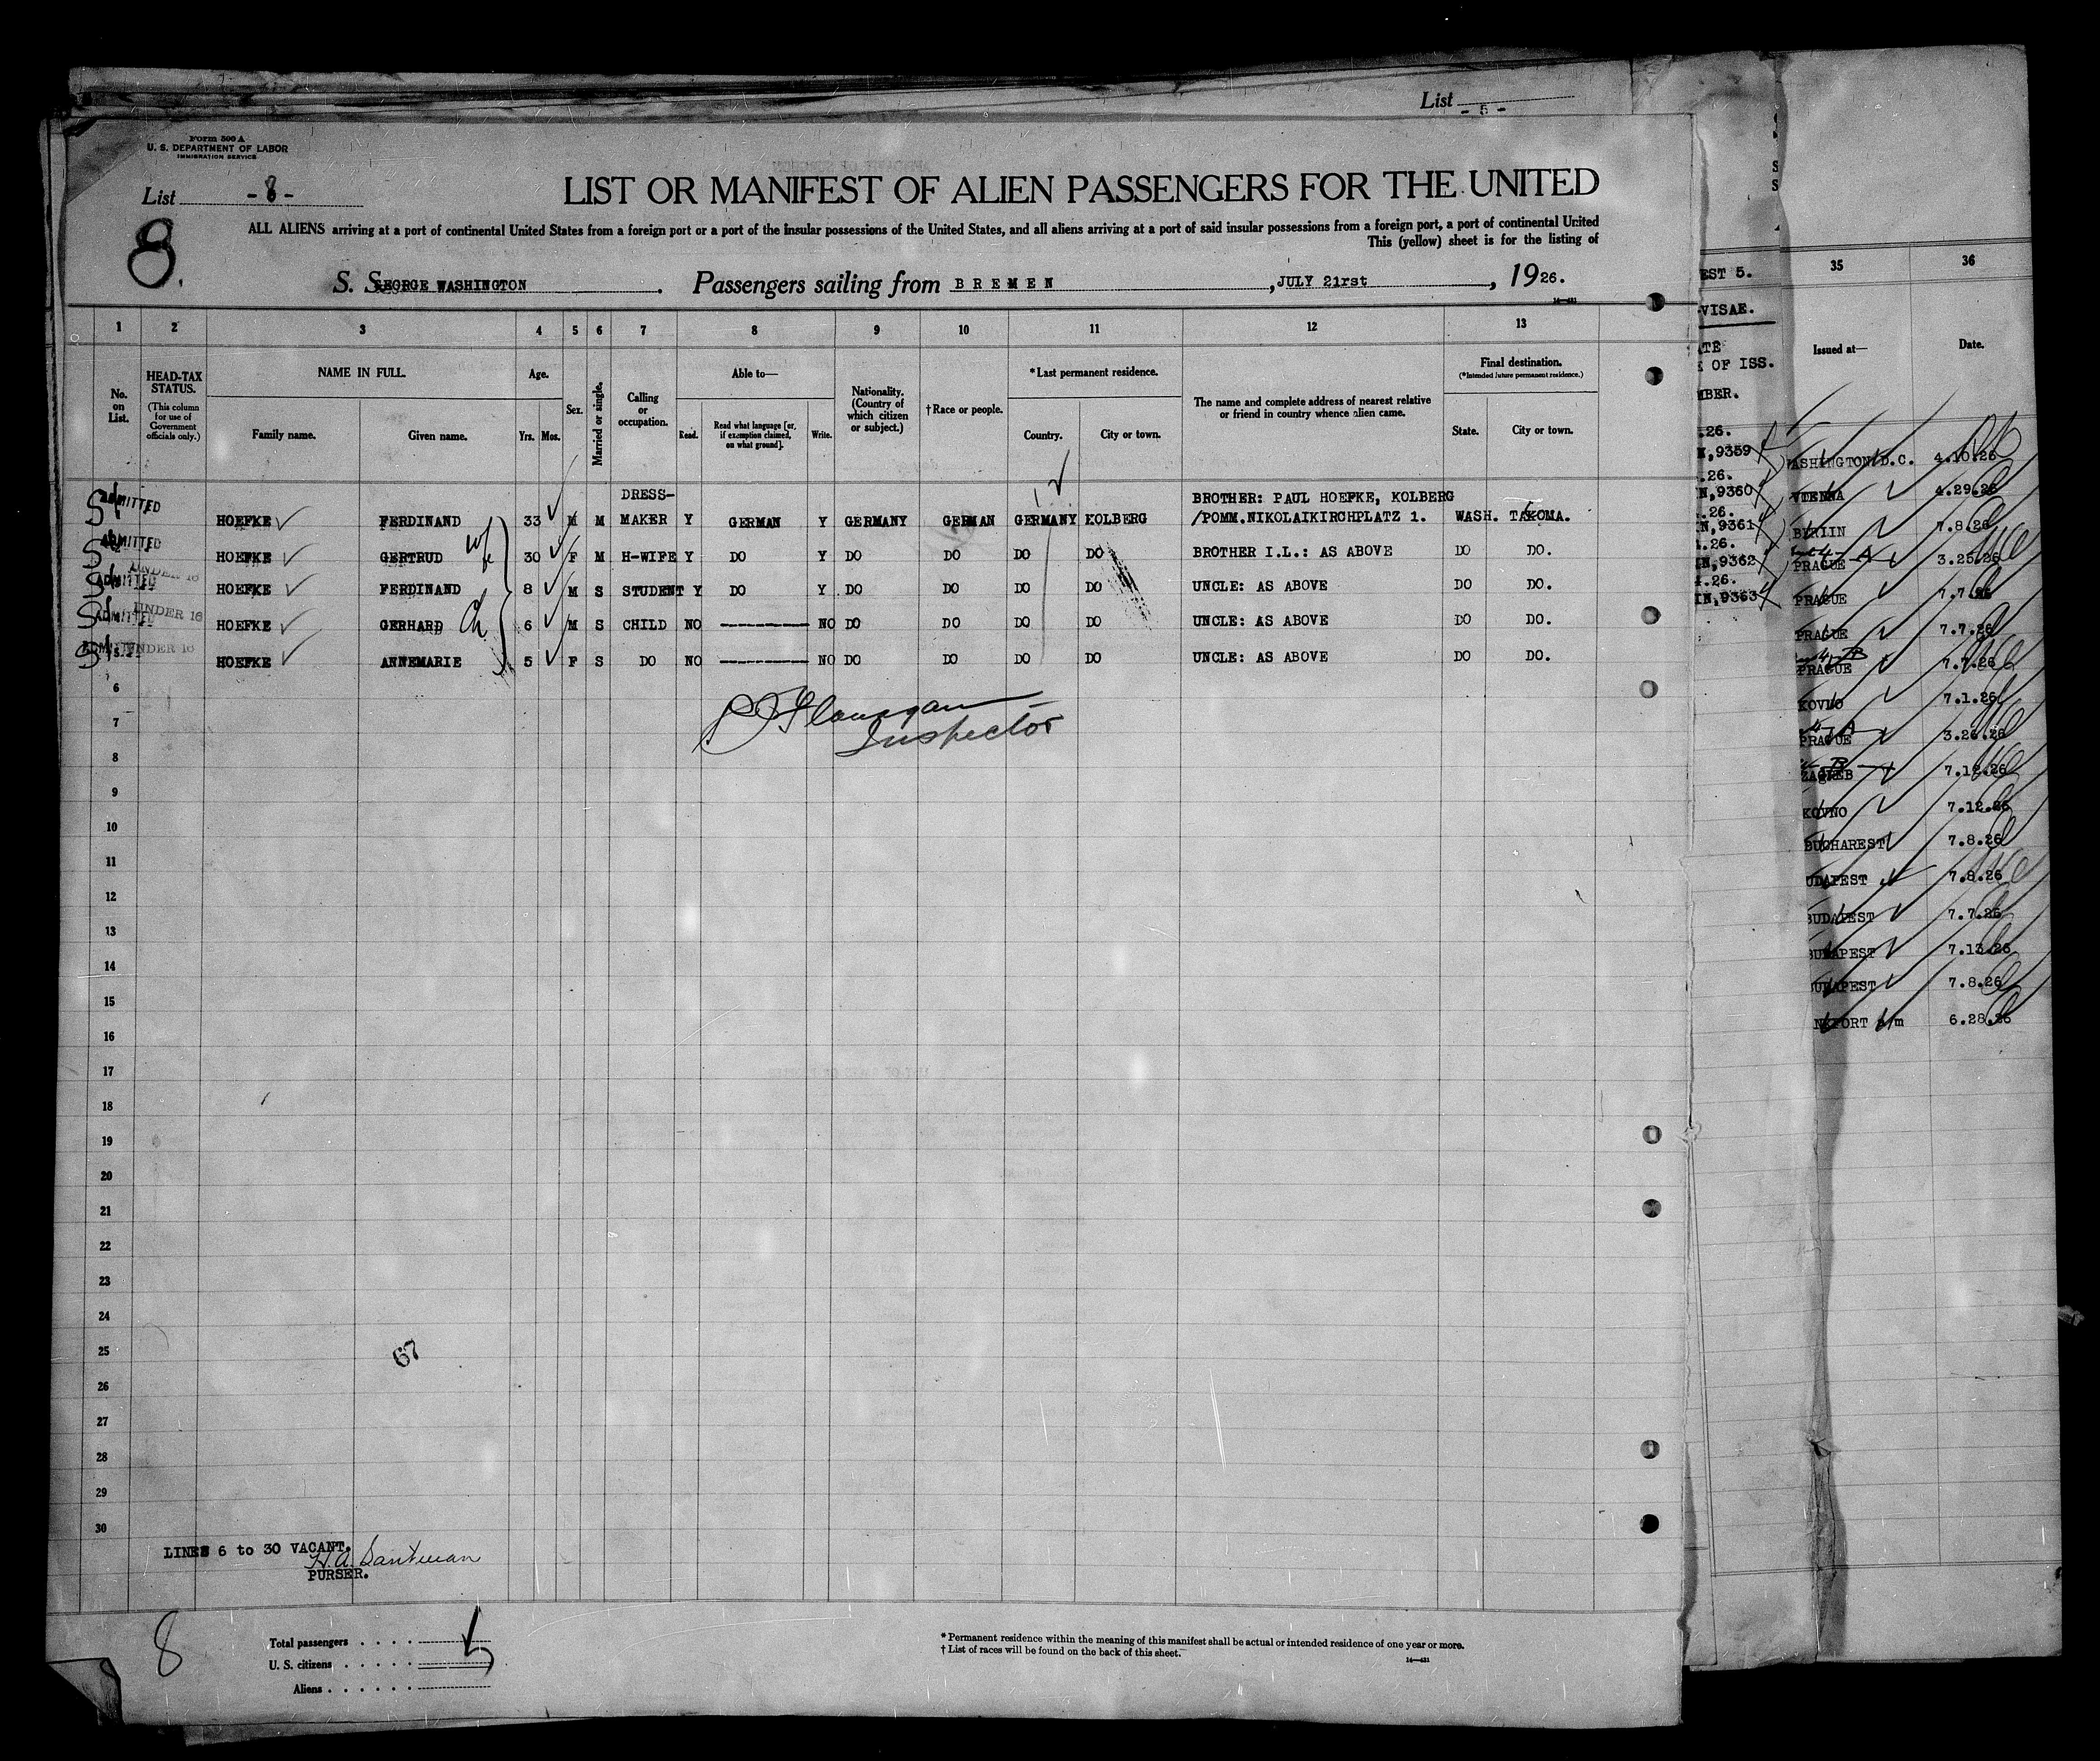 List - 5 -
Form 500 A
U. S. DEPARTMENT OF LABOR
IMMIGRATION SERVICE
List - 8 -
8.
LIST OR MANIFEST OF ALIEN PASSENGERS FOR THE UNITED
ALL ALIENS arriving at a port of continental United States from a foreign port or a port of the insular possessions of the United States, and all aliens arriving at a port of said insular possessions from a foreign port, a port of continental United
This (yellow) sheet is for the listing of
S. S. GEORGE WASHINGTON . Passengers sailing from BREMEN , JULY 21rst , 1926.
1 2 3 4 5 6 7 8 9 10 11 12 13
No. on List.
HEAD-TAX STATUS.
(This column for use of Government officials only.)
NAME IN FULL.
Family name. Given name.
Age.
Yrs. Mos.
Sex.
Married or single.
Calling or occupation.
Able to—
Read. Read what language [or, if exemption claimed, on what ground]. Write.
Nationality. (Country of which citizen or subject.)
†Race or people.
*Last permanent residence.
Country. City or town.
The name and complete address of nearest relative or friend in country whence alien came.
Final destination.
(*Intended future permanent residence.)
State. City or town.
ADMITTED HOEFKE FERDINAND 33 M M DRESS-MAKER Y GERMAN Y GERMANY GERMAN GERMANY KOLBERG BROTHER: PAUL HOEFKE, KOLBERG /POMM.NIKOLAIKIRCHPLATZ 1. WASH. TAKOMA.
ADMITTED HOEFKE GERTRUD wfe 30 F M H-WIFE Y DO Y DO DO DO DO BROTHER I.L.: AS ABOVE DO DO.
ADMITTED UNDER 16 HOEFKE FERDINAND 8 M S STUDENT Y DO Y DO DO DO DO UNCLE: AS ABOVE DO DO.
ADMITTED UNDER 16 HOEFKE GERHARD Ch 6 M S CHILD NO ---------- NO DO DO DO DO UNCLE: AS ABOVE DO DO.
UNDER 16 HOEFKE ANNEMARIE 5 F S DO NO ---------- NO DO DO DO DO UNCLE: AS ABOVE DO DO.
Inspector
6
7
8
9
10
11
12
13
14
15
16
17
18
19
20
21
22
23
24
25
26
27
28
29
30
67
LINES 6 to 30 VACANT.
PURSER.
8
Total passengers
U. S. citizens
Aliens
5
* Permanent residence within the meaning of this manifest shall be actual or intended residence of one year or more.
† List of races will be found on the back of this sheet.
EST 5.
VISAE.
OF ISS.
MBER.
9359
9360
9361
9362
9363
35 36
Issued at— Date.
ASHINGTON D.C. 4.10.26
VIENNA 4.29.26
BERLIN 7.8.26
PRAGUE 3.25.26
PRAGUE 7.7.26
PRAGUE 7.7.26
PRAGUE 7.7.26
KOVNO 7.1.26
PRAGUE 3.26.26
ZAGREB 7.12.26
KOVNO 7.12.26
BUCHAREST 7.8.26
UDAPEST 7.8.26
BUDAPEST 7.7.26
BUDAPEST 7.13.26
UDAPEST 7.8.26
NKFORT a/m 6.28.26